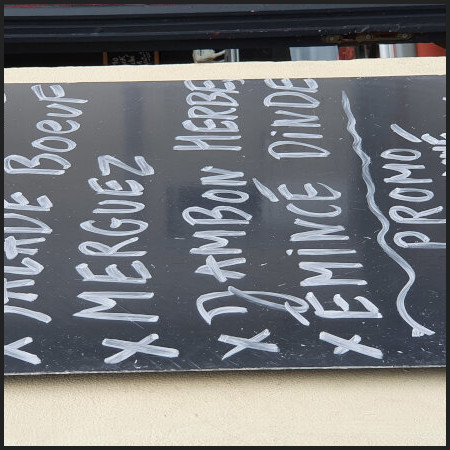 X SALADE BOEUF
X MERGUEZ
X JAMBON HERBES
X ÉMINCÉ DINDE
PROMO